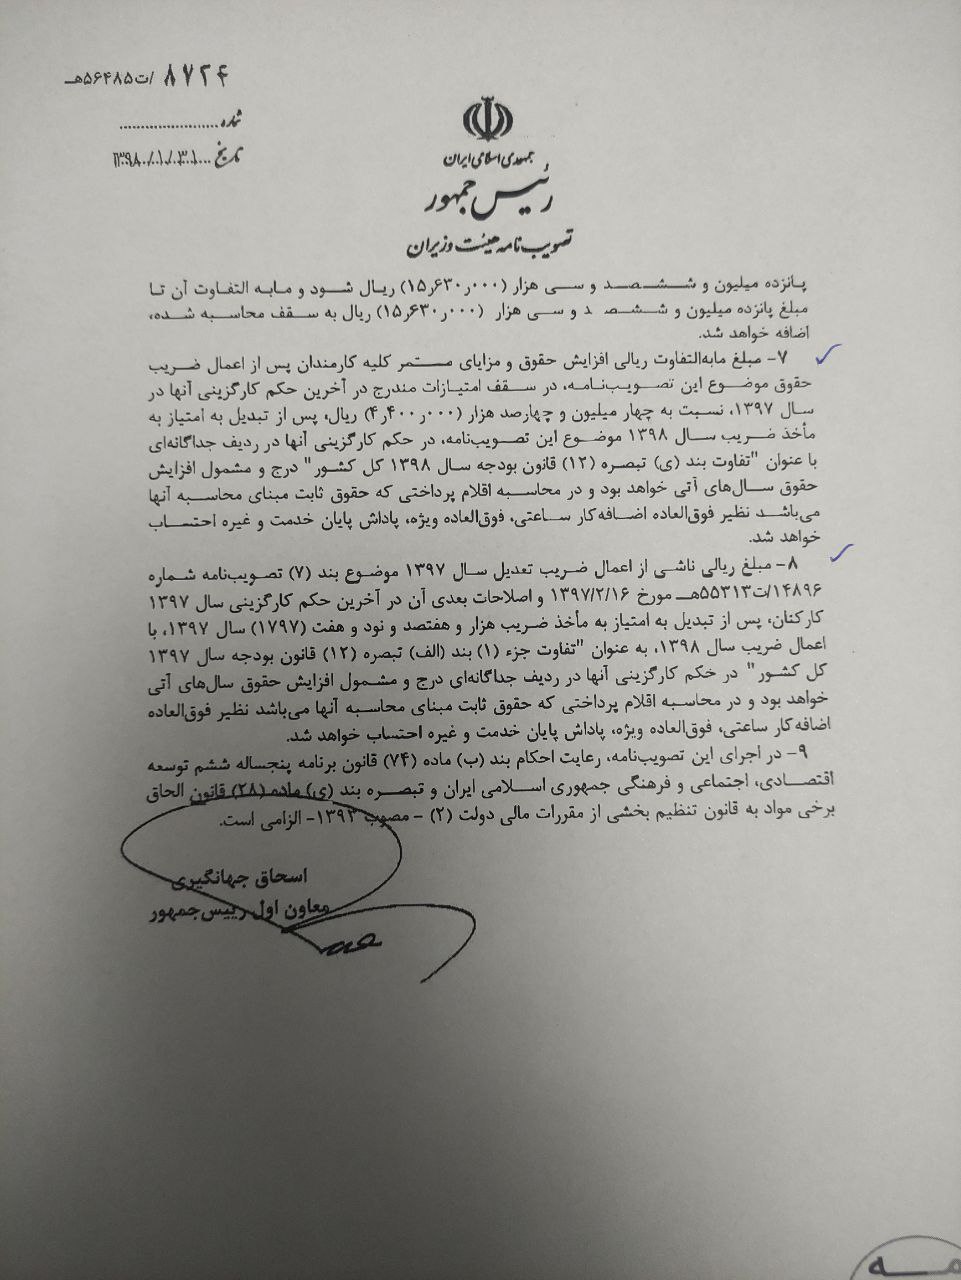 ۸۷۲۴ /ت۵۶۴۸۵هـ
شماره......................
تاریخ ....۱۳۹۸/۰۱/۳۱
جمهوری اسلامی ایران
رئیس جمهور
تصویب نامه هیئت وزیران
پانزده میلیون و ششصد و سی هزار (۱۵٫۶۳۰٫۰۰۰) ریال شود و مابه التفاوت آن تا
مبلغ پانزده میلیون و ششصد و سی هزار (۱۵٫۶۳۰٫۰۰۰) ریال به سقف محاسبه شده،
اضافه خواهد شد.
۷- مبلغ مابه‌التفاوت ریالی افزایش حقوق و مزایای مستمر کلیه کارمندان پس از اعمال ضریب
حقوق موضوع این تصویب‌نامه، در سقف امتیازات مندرج در آخرین حکم کارگزینی آنها در
سال ۱۳۹۷، نسبت به چهار میلیون و چهارصد هزار (۴٫۴۰۰٫۰۰۰) ریال، پس از تبدیل به امتیاز به
مأخذ ضریب سال ۱۳۹۸ موضوع این تصویب‌نامه، در حکم کارگزینی آنها در ردیف جداگانه‌ای
با عنوان "تفاوت بند (ی) تبصره (۱۲) قانون بودجه سال ۱۳۹۸ کل کشور" درج و مشمول افزایش
حقوق سال‌های آتی خواهد بود و در محاسبه اقلام پرداختی که حقوق ثابت مبنای محاسبه آنها
می‌باشد نظیر فوق‌العاده اضافه‌کار ساعتی، فوق‌العاده ویژه، پاداش پایان خدمت و غیره احتساب
خواهد شد.
۸- مبلغ ریالی ناشی از اعمال ضریب تعدیل سال ۱۳۹۷ موضوع بند (۷) تصویب‌نامه شماره
۱۴۸۹۶/ت۵۵۳۱۳هـ مورخ ۱۳۹۷/۲/۱۶ و اصلاحات بعدی آن در آخرین حکم کارگزینی سال ۱۳۹۷
کارکنان، پس از تبدیل به امتیاز به مأخذ ضریب هزار و هفتصد و نود و هفت (۱۷۹۷) سال ۱۳۹۷، با
اعمال ضریب سال ۱۳۹۸، به عنوان "تفاوت جزء (۱) بند (الف) تبصره (۱۲) قانون بودجه سال ۱۳۹۷
کل کشور" در حکم کارگزینی آنها در ردیف جداگانه‌ای درج و مشمول افزایش حقوق سال‌های آتی
خواهد بود و در محاسبه اقلام پرداختی که حقوق ثابت مبنای محاسبه آنها می‌باشد نظیر فوق‌العاده
اضافه‌کار ساعتی، فوق‌العاده ویژه، پاداش پایان خدمت و غیره احتساب خواهد شد.
۹- در اجرای این تصویب‌نامه، رعایت احکام بند (ب) ماده (۷۴) قانون برنامه پنجساله ششم توسعه
اقتصادی، اجتماعی و فرهنگی جمهوری اسلامی ایران و تبصره بند (ی) ماده (۲۸) قانون الحاق
برخی مواد به قانون تنظیم بخشی از مقررات مالی دولت (۲) - مصوب ۱۳۹۳- الزامی است.
اسحاق جهانگیری
معاون اول رییس‌جمهور